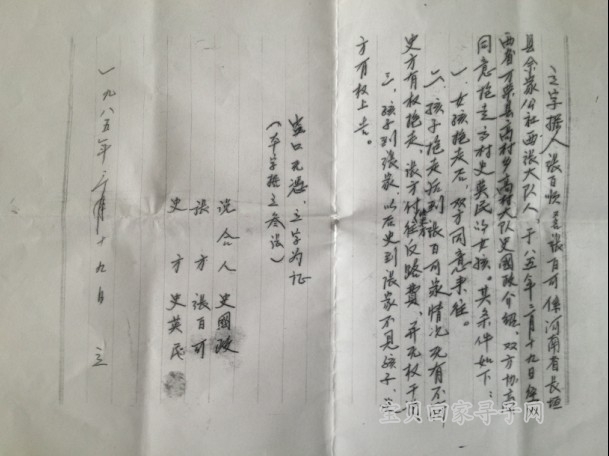 立字据人張百順、張百可係河南省長垣
县余家公社西張大队人,于八五年三月十九日经
西省万荣县高村乡高村大队史國政介绍,双方协商
同意抱走高村史英民的女孩。其条件如下:
一、女孩抱走后,双方同意来往。
二、孩子抱走后到張百可家情况况有不同
史方有权抱走,張方付往反路费,并无权干
三、孩子到張家,以后史到張家不見孩子,史
方有权上告。
空口无憑,立字为证
(本字据立叁法)
说合人 史國政
張方 張百可
史方 史英民
一九八五年三月十九日 立
宝贝回家寻子网